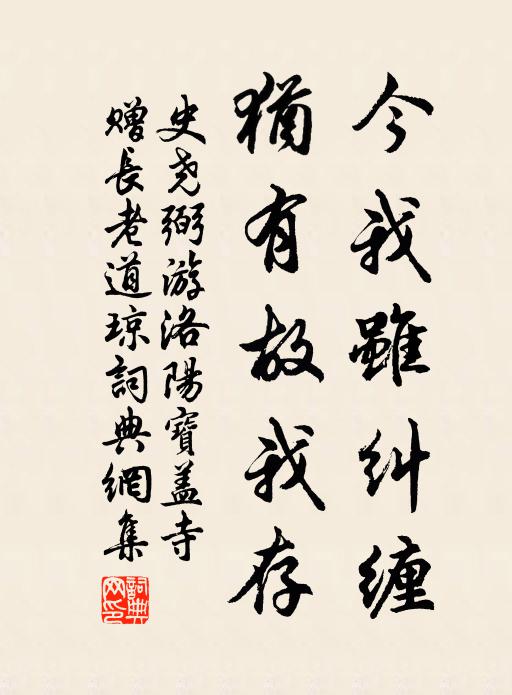 今我雖糾纏
猶有故我存
史堯弼游洛陽寶蓋寺
贈長老道琼詞典網集
詞典網印